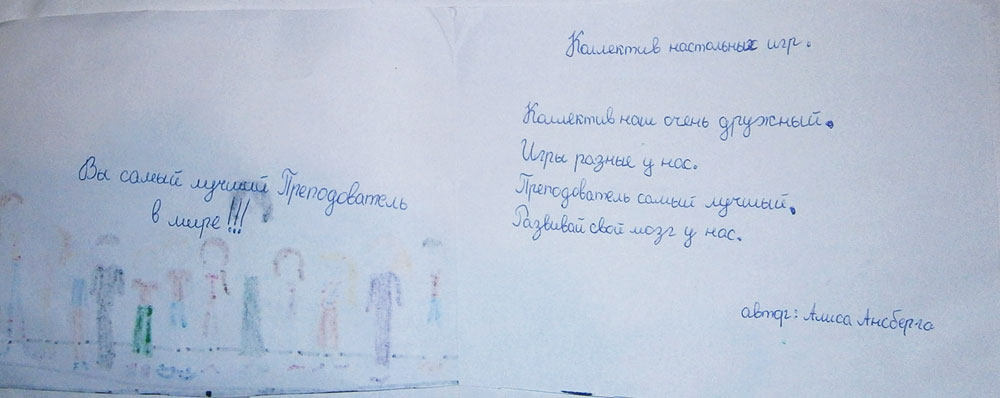 Вы самый лучший Преподователь
в мире!!!
Коллектив настольных игр.
Коллектив наш очень дружный.
Игры разные у нас.
Преподователь самый лучший.
Развивай свой мозг у нас.
автор: Алиса Ансберга